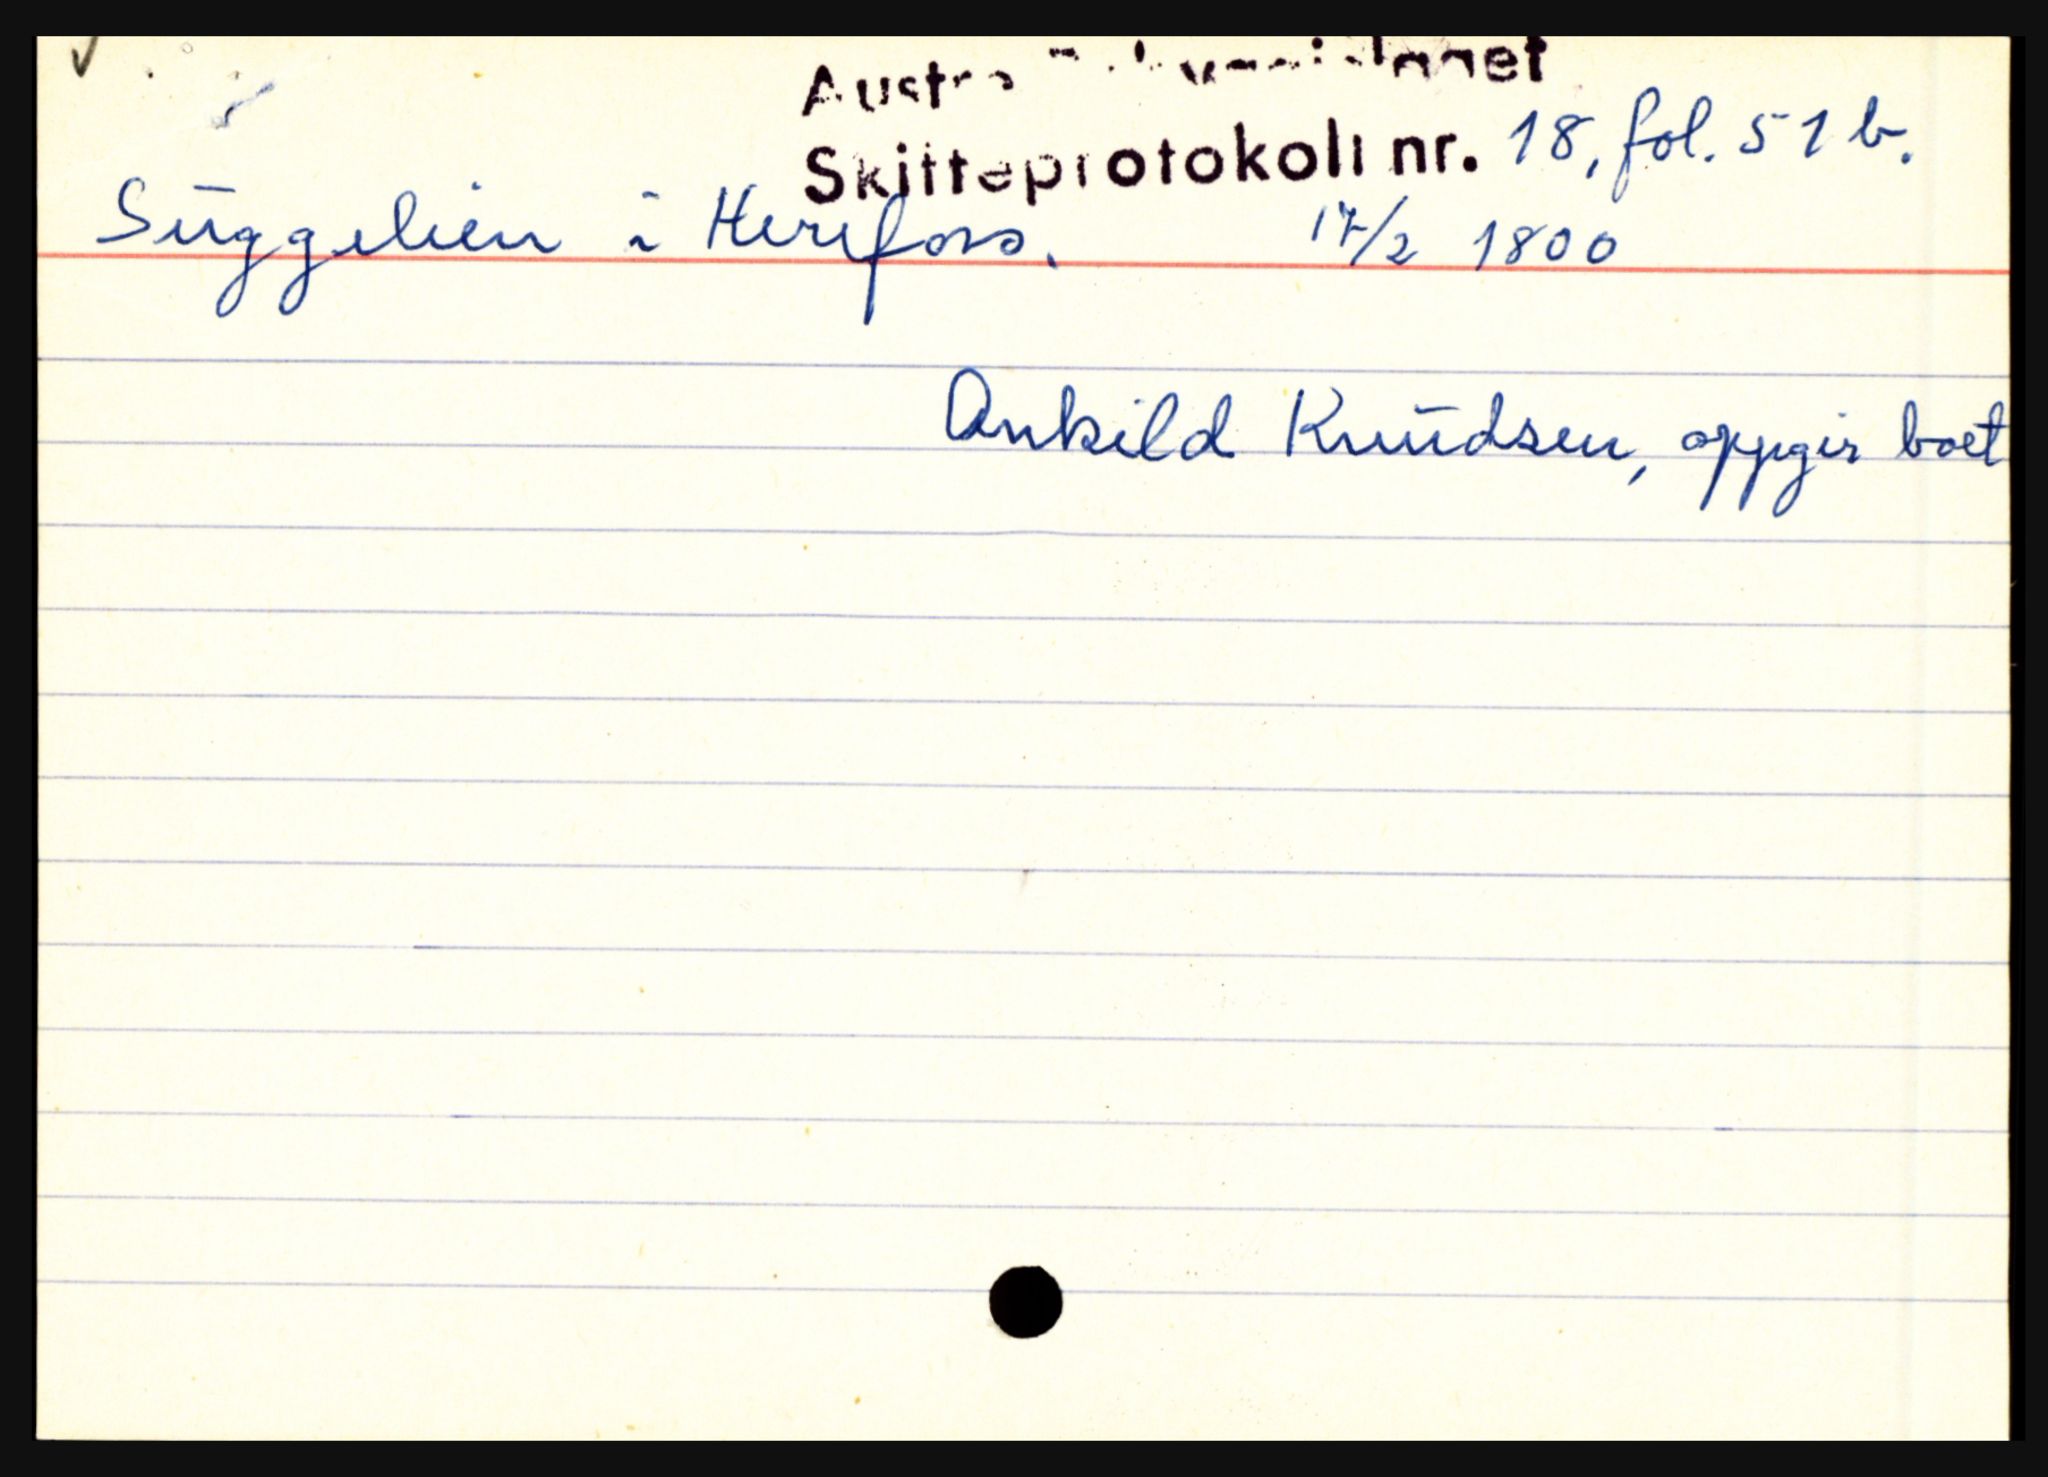 Skifteprotokoll nr. 18, fol. 51 b.
Suggelien i Herefoss. 17/2 1800
Ankild Knudsen, oppgir boet